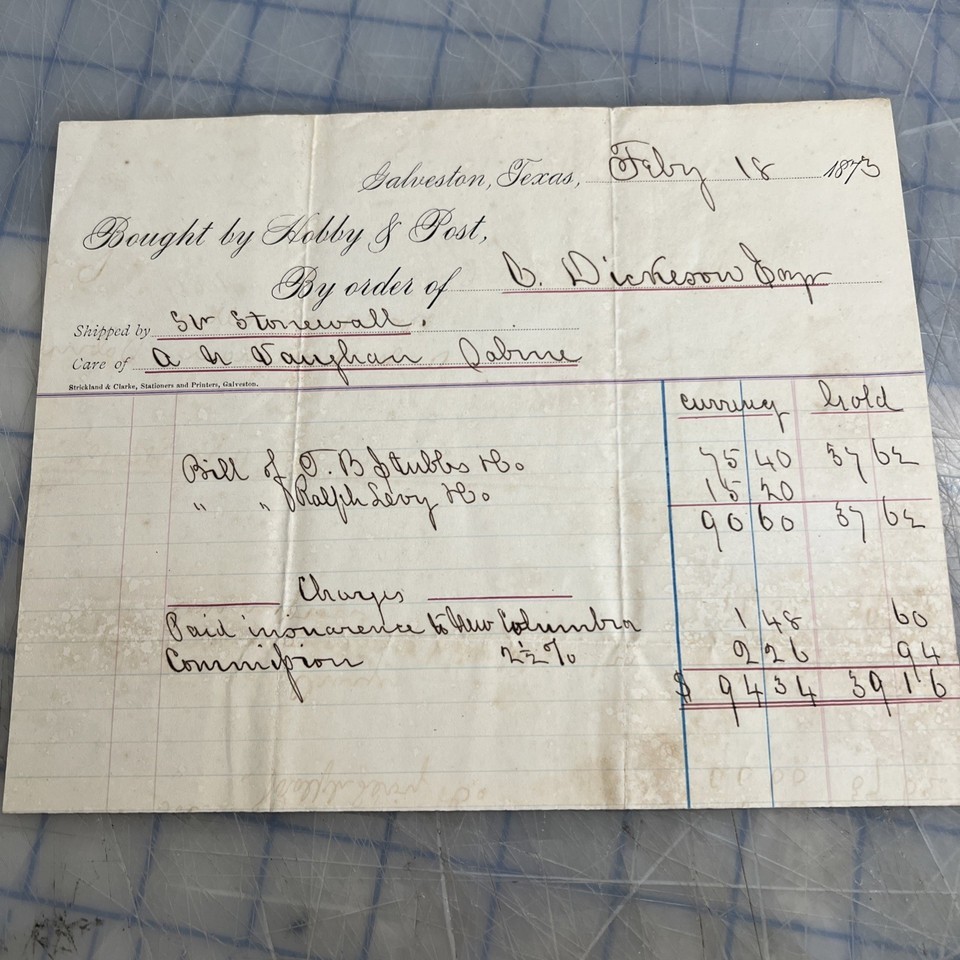 Galveston, Texas, Feby 18 1873
Bought by Hobby & Post,
By order of B. Dickeson Esqr
Shipped by Sr Stonewall.
Care of A N Vaughan Sabine
Strickland & Clarke, Stationers and Printers, Galveston.
currency Gold
Bill of T. B Stubbs & Co 75 40 37 62
" " Ralph Levy & Co 15 20
90 60 37 62
Charges
Paid insurence to New Columbia 1 48 60
Commission 2½% 2 26 94
$ 94 34 39 16